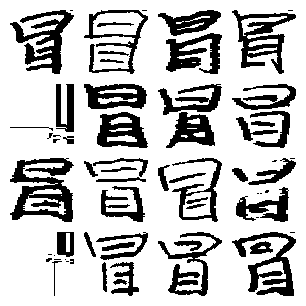 冒冒冒冒
冒冒冒
冒冒冒冒
冒冒冒